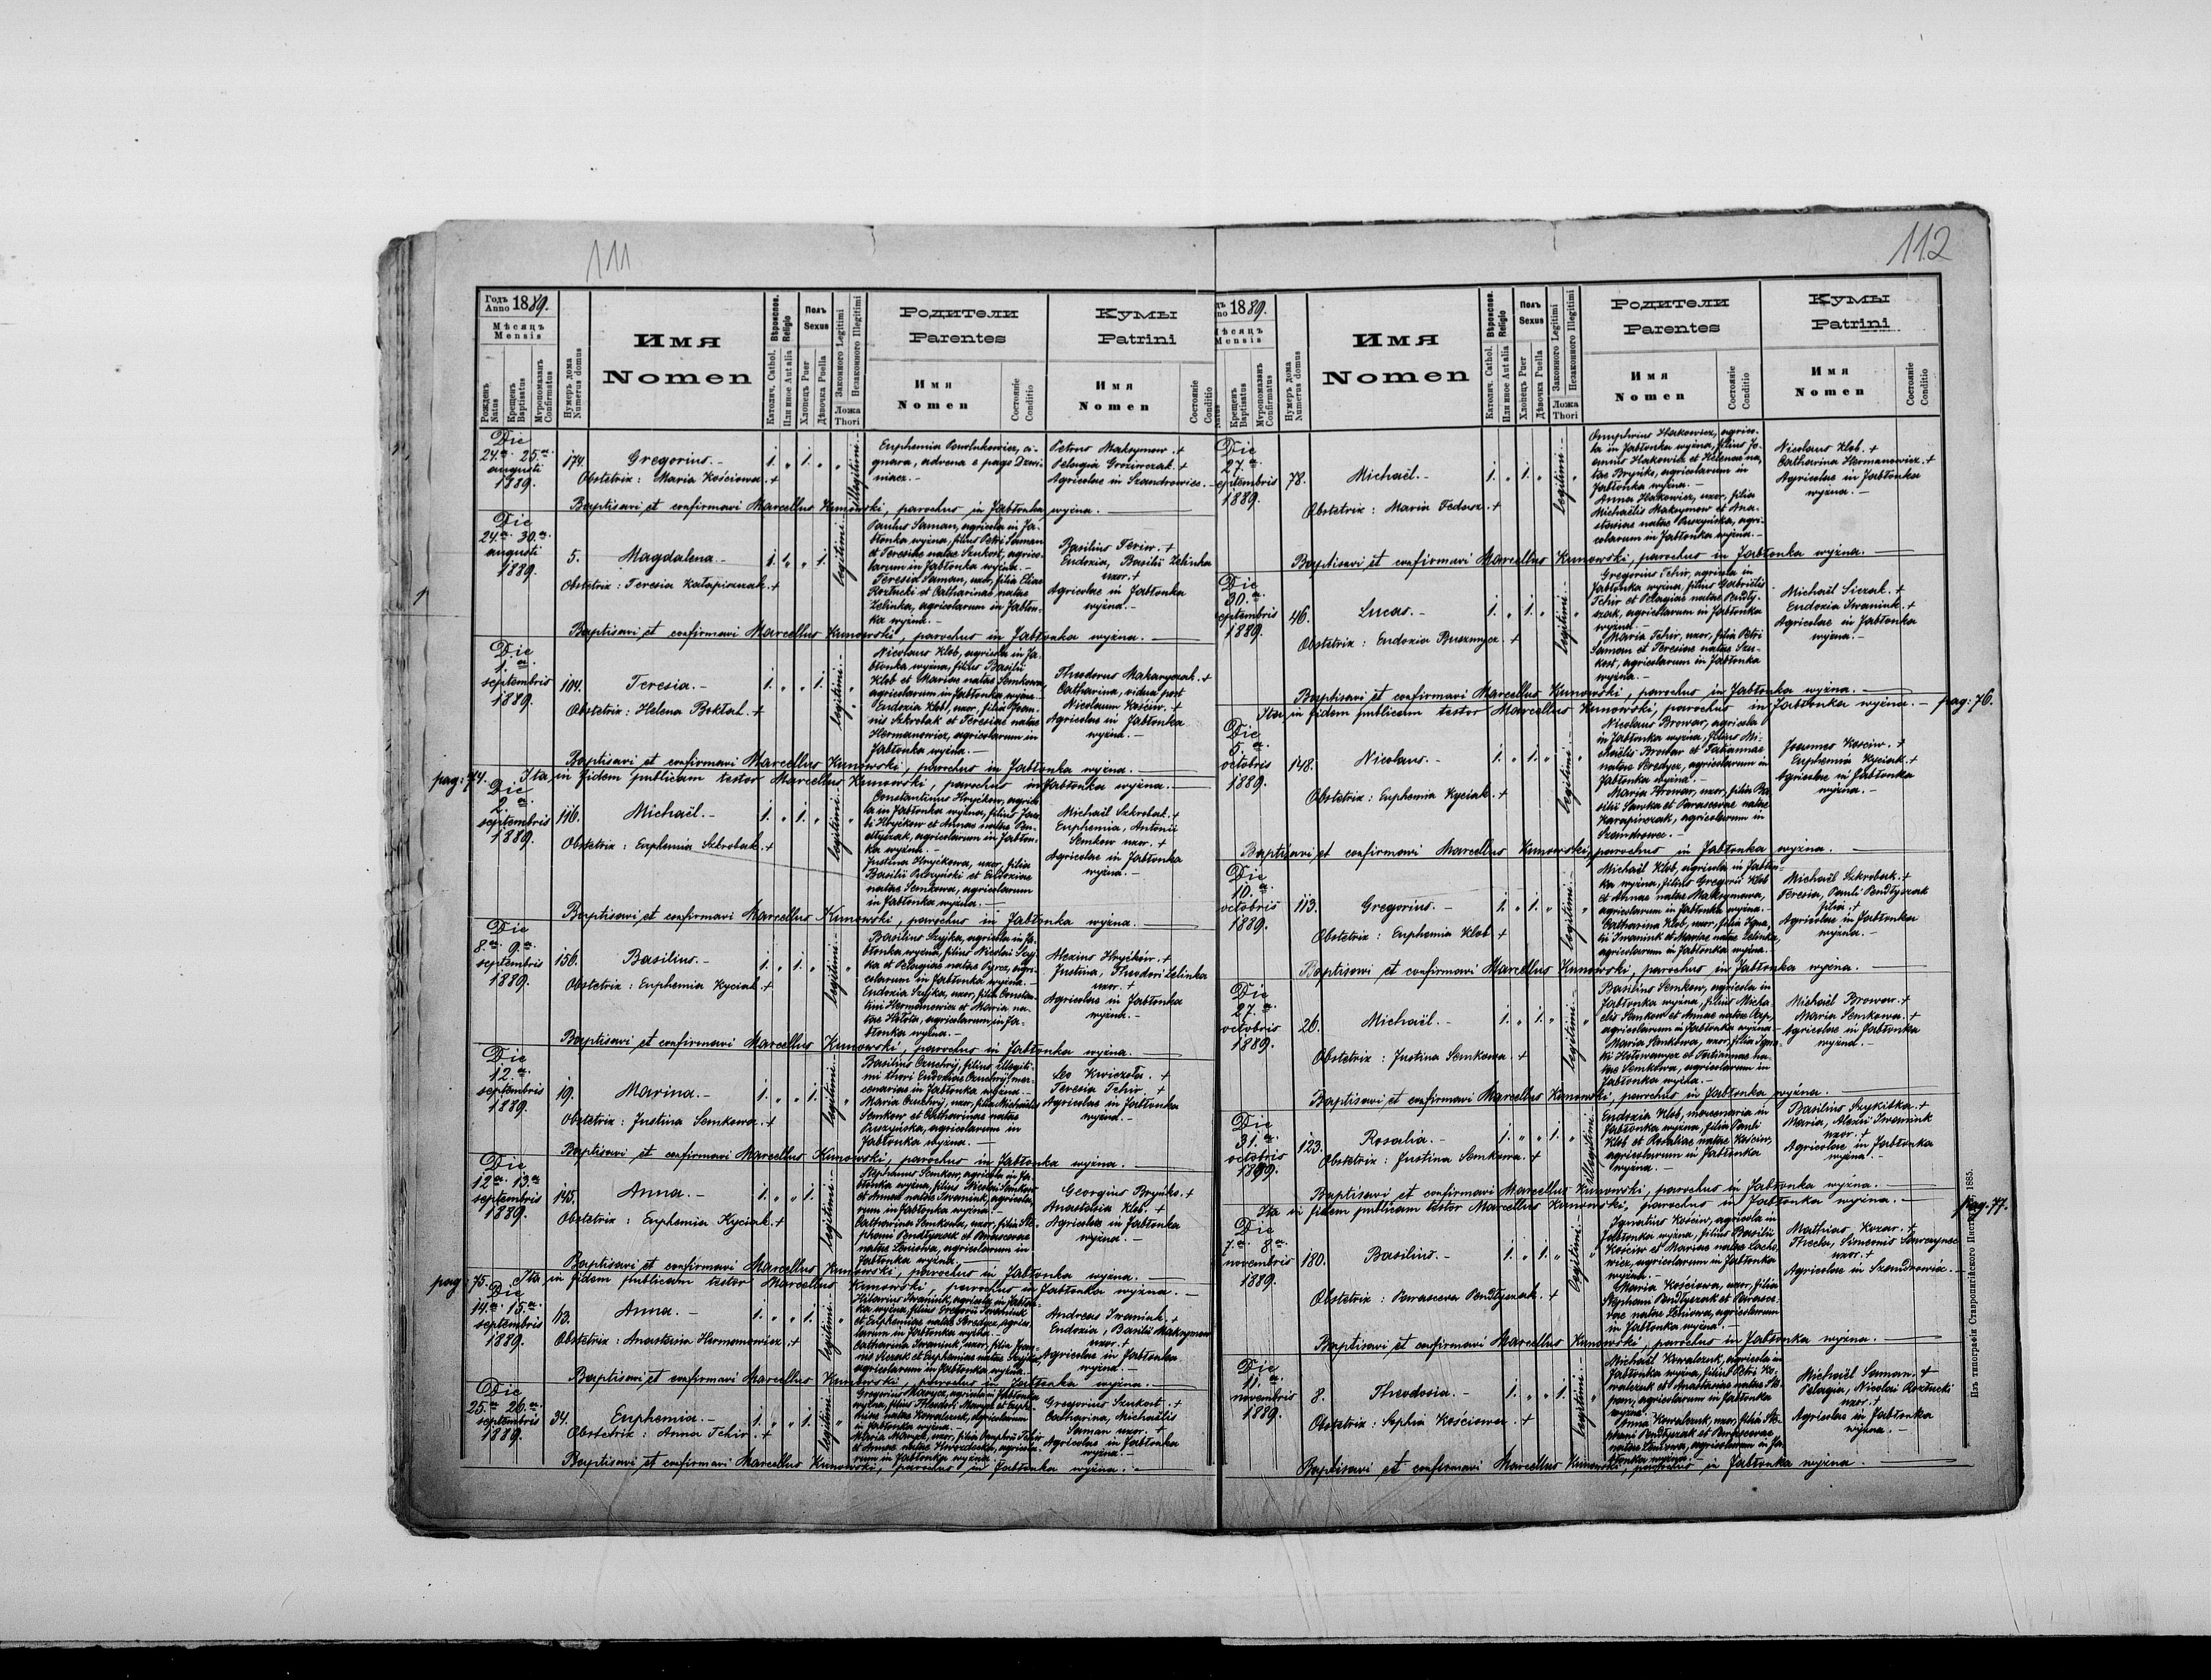 111
Годъ Anno 1889.
Мѣсяцъ Mensis
Рожденъ Natus
Крещенъ Baptisatus
Мѵропомазанъ Confirmatus
Нумеръ дома Numerus domus
Имя Nomen
Вѣроиспов. Religio
Католич. Cathol.
Или иное Aut alia
Полъ Sexus
Хлопецъ Puer
Дѣвочка Puella
Законного Legitimi
Незаконного Illegitimi
Ложа Thori
Родители Parentes
Имя Nomen
Состояніе Conditio
Кумы Patrini
Имя Nomen
Состояніе Conditio
Die 24.a 25.a augusti 1889.
174.
Gregorius.-
Obstetrix: Maria Kościowa.+
1. „ 1. „ „ illegitimi.-
Euphemia
advena e pago
Petrus Maksymow.+
Pelagia +
Agricolae in Szandrowiec.-
Baptisavi et confirmavi Marcellus Kunowski, parochus in Jabłonka wyżna.
Die 24.a 30.a augusti 1889.
5.
Magdalena.-
Obstetrix: Teresia +
1. „ „ 1. legitimi.-
Paulus Saman, agricola in Ja-
błonka wyżna, filius Petri Saman
et Teresiae natae Szukost, agrico-
larum in Jabłonka wyżna.-
Teresia Saman, uxor, filia Eliae
Roztucki et Catharinae natae
Zelinka, agricolarum in Jabłon-
ka wyżna.-
Basilius +
Eudoxia, Basilii Zelinka
uxor.+
Agricolae in Jabłonka
wyżna.-
Baptisavi et confirmavi Marcellus Kunowski, parochus in Jabłonka wyżna.
Die 1.a septembris 1889.
104.
Teresia.-
Obstetrix: Helena +
1. „ „ 1. legitimi.- „
Nicolaus Kleb, agricola in Ja-
błonka wyżna, filius Basilii
Kleb et Mariae natae Semkowa,
agricolarum in Jabłonka wyżna.-
Eudoxia Kleb, uxor, filia Joan-
nis Szkrobak et Teresiae natae
Hermanowicz, agricolarum in
Jabłonka wyżna.-
Theodorus Makaryczak.+
Catharina, vidua post
Nicolaum Kościw.+
Agricolae in Jabłonka
wyżna.-
Baptisavi et confirmavi Marcellus Kunowski, parochus in Jabłonka wyżna.
pag: 74. Ita in fidem publicam testor Marcellus Kunowski, parochus in Jabłonka wyżna.
Die 2.a septembris 1889.
116.
Michaël.-
Obstetrix: Euphemia Szkrobak.+
1. „ 1. „ legitimi.- „
Constantinus Hryćkow, agrico-
la in Jabłonka wyżna, filius Jaco-
bi Hryćkow et Annae natae Pen-
dłyczak, agricolarum in Jabłon-
ka wyżna.-
Justina Hryćkowa, uxor, filia
Basilii Puszyński et Eudoxiae
natae Semkowa, agricolarum
in Jabłonka wyżna.-
Michaël Szkrobak.+
Euphemia, Antonii
Semkow uxor.+
Agricolae in Jabłonka
wyżna.-
Baptisavi et confirmavi Marcellus Kunowski, parochus in Jabłonka wyżna.
Die 8.a 9.a septembris 1889.
156.
Basilius.-
Obstetrix: Euphemia Kyciak.+
1. „ 1. „ legitimi.- „
Basilius Szyjka, agricola in Ja-
błonka wyżna, filius Nicolai Szyj-
ka et Pelagiae natae Pyrcz, agri-
colarum in Jabłonka wyżna.-
Eudoxia Szyjka, uxor, filia Constan-
tini Hermanowicz et Maria na-
tae Hołota, agricolarum in Ja-
błonka wyżna.-
Alexius Hryćkow.+
Justina, Theodori Zelinka
uxor.+
Agricolae in Jabłonka
wyżna.-
Baptisavi et confirmavi Marcellus Kunowski, parochus in Jabłonka wyżna.
Die 12.a septembris 1889.
19.
Marina.-
Obstetrix: Justina Semkowa.+
1. „ „ 1. legitimi.- „
Basilius filius illegiti-
mi thori Eudoxiae mer-
cenariae in Jabłonka wyżna.-
Maria uxor, filia Michaëlis
Semkow et Catharinae natae
Puszyńska, agricolarum in
Jabłonka wyżna.-
Leo +
Teresia Tchir.+
Agricolae in Jabłonka
wyżna.-
Baptisavi et confirmavi Marcellus Kunowski, parochus in Jabłonka wyżna.
Die 12.a 13.a septembris 1889.
145.
Anna.-
Obstetrix: Euphemia Kyciak.+
1. „ „ 1. legitimi.- „
Stephanus Semkow, agricola in Ja-
błonka wyżna, filius Nicolai Semkow
et Annae natae Iwaniuk, agricola-
rum in Jabłonka wyżna.-
Catharina Semkowa, uxor, filia Ste-
phani Pendłyczak et Parascevae
natae Leniowa, agricolarum in
Jabłonka wyżna.-
Georgius Bryńko.+
Anastasia Kleb.+
Agricolae in Jabłonka
wyżna.-
Baptisavi et confirmavi Marcellus Kunowski, parochus in Jabłonka wyżna.
pag: 75. Ita in fidem publicam testor Marcellus Kunowski, parochus in Jabłonka wyżna.-
Die 14.a 15.a septembris 1889.
63.
Anna.-
Obstetrix: Anastasia Hermanowicz.+
1. „ „ 1. legitimi.- „
Hilarius Iwaniuk, agricola in Jabłon-
ka wyżna, filius Gregorii Iwaniuk
et Euphemiae natae Seredycz, agrico-
larum in Jabłonka wyżna.-
Catharina Iwaniuk, uxor, filia Joan-
nis Siczak et Euphemiae natae Szyjka,
agricolarum in Jabłonka wyżna.-
Andreas Iwaniuk.+
Eudoxia, Basilii Maksymow
uxor.+
Agricolae in Jabłonka
wyżna.-
Baptisavi et confirmavi Marcellus Kunowski, parochus in Jabłonka wyżna.
Die 25.a 26.a septembris 1889.
34.
Euphemia.-
Obstetrix: Anna Tchir.+
1. „ „ 1. legitimi.- „
Gregorius Marycz, agricola in Jabłonka
wyżna, filius Theodori Marycz et Euphe-
miae natae Kowalczuk, agricolarum
in Jabłonka wyżna.-
Maria Marycz, uxor, filia Onuphrii Tchir
et Annae natae agricola-
rum in Jabłonka wyżna.-
Gregorius Szukost.+
Catharina, Michaëlis
Saman uxor.+
Agricolae in Jabłonka
wyżna.-
Baptisavi et confirmavi Marcellus Kunowski, parochus in Jabłonka wyżna.-
112
1889.
Мѣсяцъ Mensis
Крещенъ Baptisatus
Мѵропомазанъ Confirmatus
Нумеръ дома Numerus domus
Имя Nomen
Вѣроиспов. Religio
Католич. Cathol.
Или иное Aut alia
Полъ Sexus
Хлопецъ Puer
Дѣвочка Puella
Законного Legitimi
Незаконного Illegitimi
Ложа Thori
Родители Parentes
Имя Nomen
Состояніе Conditio
Кумы Patrini
Имя Nomen
Состояніе Conditio
Die 27.a septembris 1889.
78.
Michaël.-
Obstetrix: Maria Fedusz.+
1. „ 1. „ legitimi.- „
Onuphrius Hakowicz, agrico-
la in Jabłonka wyżna, filius Jo-
annis Hakowicz et Helenae na-
tae Bryńko, agricolarum in
Jabłonka wyżna.-
Anna Hakowicz, uxor, filia
Michaëlis Maksymow et Ana-
stasiae natae Puszyńska, agri-
colarum in Jabłonka wyżna.-
Nicolaus Kleb.+
Catharina Hermanowicz.+
Agricolae in Jabłonka
wyżna.-
Baptisavi et confirmavi Marcellus Kunowski, parochus in Jabłonka wyżna.
Die 30.a septembris 1889.
46.
Lucas.-
Obstetrix: Eudoxia +
1. „ 1. „ legitimi.- „
Gregorius Tchir, agricola in
Jabłonka wyżna, filius Gabrielis
Tchir et Pelagiae natae Pendły-
czak, agricolarum in Jabłonka
wyżna.-
Maria Tchir, uxor, filia Petri
Saman et Teresiae natae Szu-
kost, agricolarum in Jabłonka
wyżna.-
Michaël Siczak.+
Eudoxia Iwaniuk.+
Agricolae in Jabłonka
wyżna.-
Baptisavi et confirmavi Marcellus Kunowski, parochus in Jabłonka wyżna.
Ita in fidem publicam testor Marcellus Kunowski, parochus in Jabłonka wyżna.- pag: 76.
Die 5.a octobris 1889.
148.
Nicolaus.-
Obstetrix: Euphemia Kyciak.+
1. „ 1. „ legitimi.- „
Nicolaus Browar, agricola
in Jabłonka wyżna, filius Mi-
chaëlis Browar et Tatiannae
natae Seredycz, agricolarum in
Jabłonka wyżna.-
Maria Browar, uxor, filia Ba-
silii Sawka et Parascevae natae
agricolarum in
Szandrowec.-
Joannes Kościw.+
Euphemia Kyciak.+
Agricolae in Jabłonka
wyżna.-
Baptisavi et confirmavi Marcellus Kunowski, parochus in Jabłonka wyżna.
Die 10.a octobris 1889.
113.
Gregorius.-
Obstetrix: Euphemia Kleb +
1. „ 1. „ legitimi.- „
Michaël Kleb, agricola in Jabłon-
ka wyżna, filius Gregorii Kleb
et Annae natae Maksymowa,
agricolarum in Jabłonka wyżna.-
Catharina Kleb, uxor, filia Igna-
tii Iwaniuk et Mariae natae Zelinka,
agricolarum in Jabłonka wyżna.-
Michaël Szkrobak.+
Teresia, Pauli Pendłyczak
filia.+
Agricolae in Jabłonka
wyżna.-
Baptisavi et confirmavi Marcellus Kunowski, parochus in Jabłonka wyżna.
Die 27.a octobris 1889.
26.
Michaël.-
Obstetrix: Justina Semkowa.+
1. „ 1. „ legitimi.- „
Basilius Semkow, agricola in
Jabłonka wyżna, filius Micha-
ëlis Semkow et Annae natae
agricolarum in Jabłonka wyżna.-
Maria Semkowa, uxor, filia
et Tatiannae na-
tae Semkowa, agricolarum in
Jabłonka wyżna.-
Michaël Browar.+
Maria Semkowa.+
Agricolae in Jabłonka
wyżna.-
Baptisavi et confirmavi Marcellus Kunowski, parochus in Jabłonka wyżna.
Die 31.a octobris 1889.
123.
Rosalia.-
Obstetrix: Justina Semkowa.+
1. „ „ 1. „ illegitimi.-
Eudoxia Kleb, mercenaria in
Jabłonka wyżna, filia Pauli
Kleb et Rosaliae natae Kościw,
agricolarum in Jabłonka
wyżna.-
Basilius +
Maria, Alexii Iwaniuk
uxor.+
Agricolae in Jabłonka
wyżna.-
Baptisavi et confirmavi Marcellus Kunowski, parochus in Jabłonka wyżna.
Ita in fidem publicam testor Marcellus Kunowski, parochus in Jabłonka wyżna.- pag: 77.
Die 7.a 8.a novembris 1889.
180.
Basilius.-
Obstetrix: Parasceva Pendłyczak.+
1. „ 1. „ legitimi.- „
Ignatius Kościw, agricola in
Jabłonka wyżna, filius Basilii
Kościw et Mariae natae Lacho-
wicz, agricolarum in Jabłonka
wyżna.-
Maria Kościowa, uxor, filia
Stephani Pendłyczak et Parasce-
vae natae Leniowa, agricolarum
in Jabłonka wyżna.-
Mathias Kozar.+
Thecla, Simeonis
uxor.+
Agricolae in Szandrowiec.-
Baptisavi et confirmavi Marcellus Kunowski, parochus in Jabłonka wyżna.
Die 11.a novembris 1889.
8.
Theodosia.-
Obstetrix: Sophia Kościowa.+
1. „ „ 1. legitimi.- „
Michaël Kowalczuk, agricola in
Jabłonka wyżna, filius Petri Ko-
walczuk et Anastasiae natae
agricolarum in Jabłonka
wyżna.-
Anna Kowalczuk, uxor, filia Ste-
phani Pendłyczak et Parascevae
natae Leniowa, agricolarum in Ja-
błonka wyżna.-
Michaël Saman.+
Pelagia, Nicolai Roztucki
uxor.+
Agricolae in Jabłonka
wyżna.-
Baptisavi et confirmavi Marcellus Kunowski, parochus in Jabłonka wyżna.
Изъ типографіи Ставропигійского Инстит. 1885.